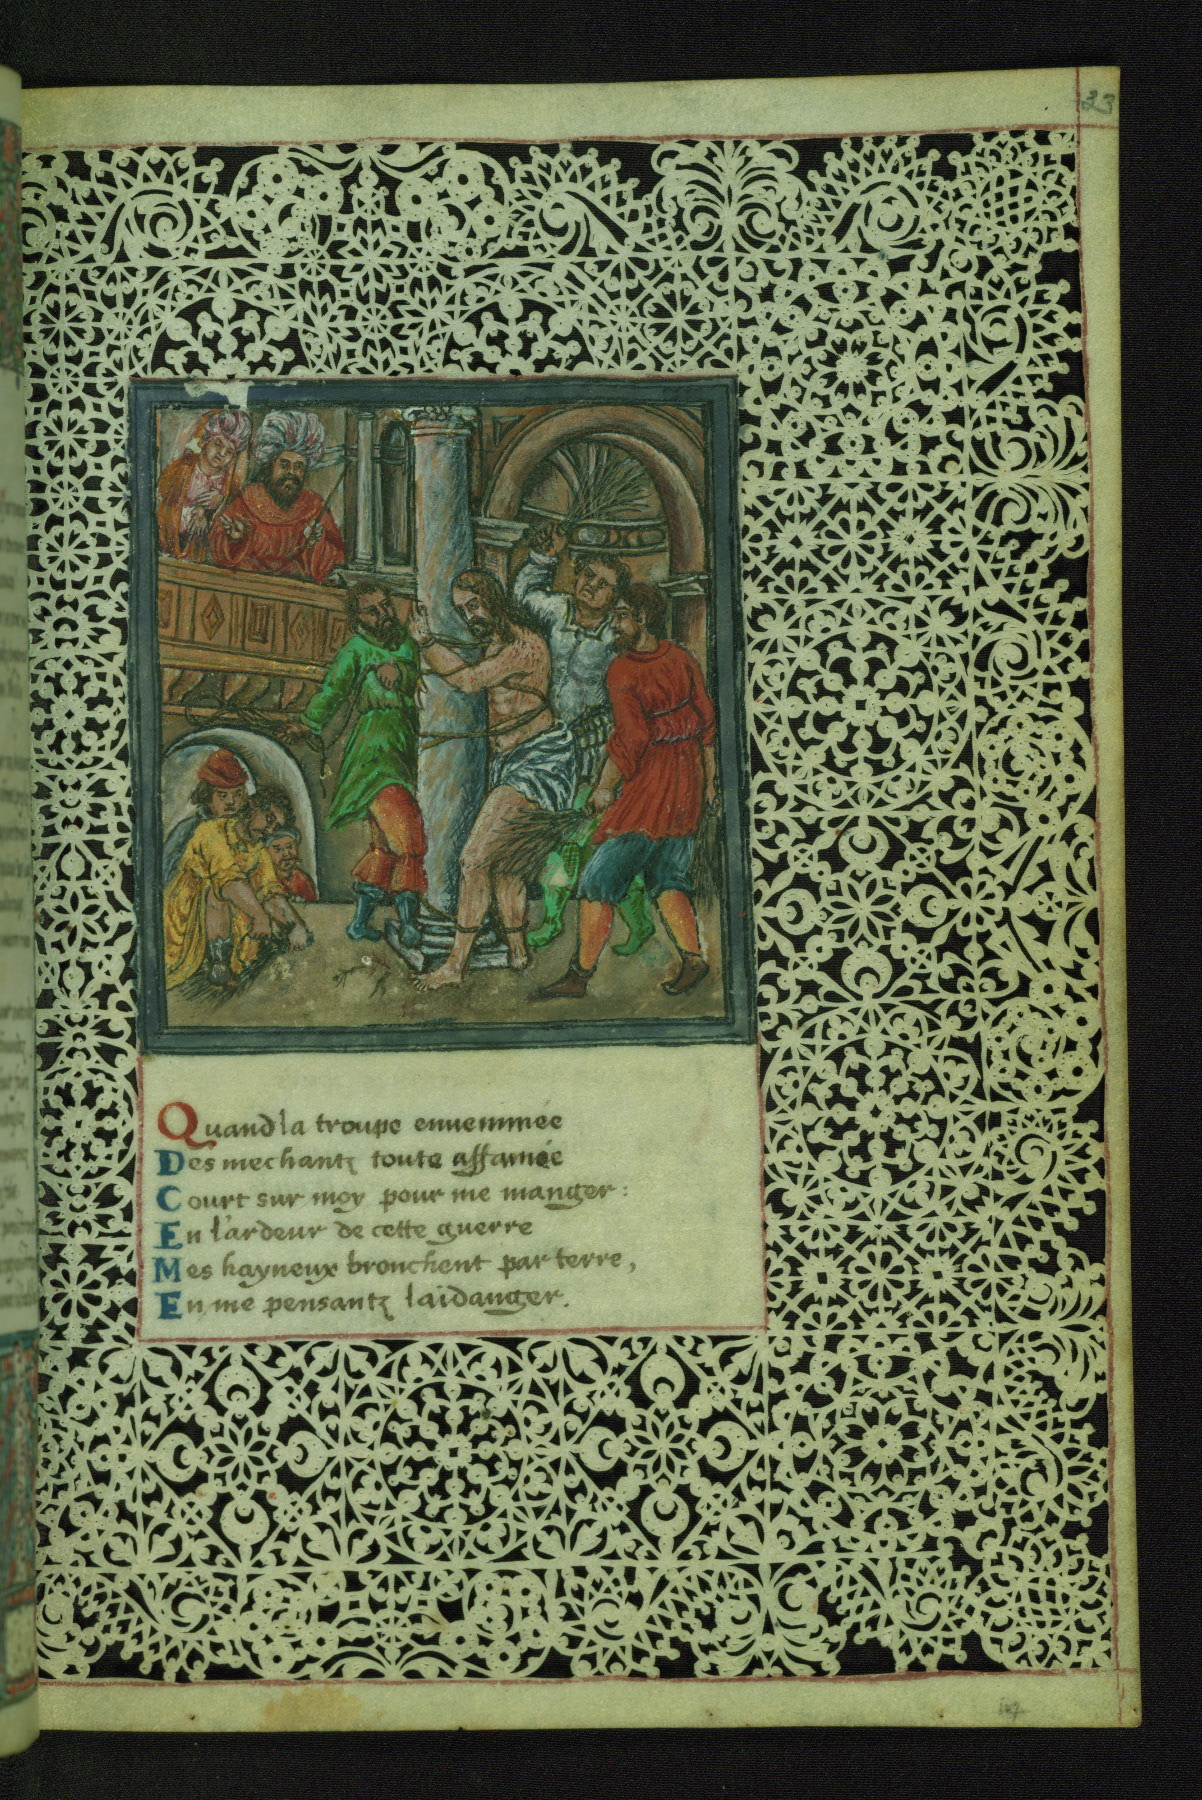 23
Quand la troupe enuenimée
Des mechantz toute affamée
Court sur moy pour me manger:
En l'ardeur de cette guerre
Mes hayneux bronchent par terre,
En me pensantz laidanger.